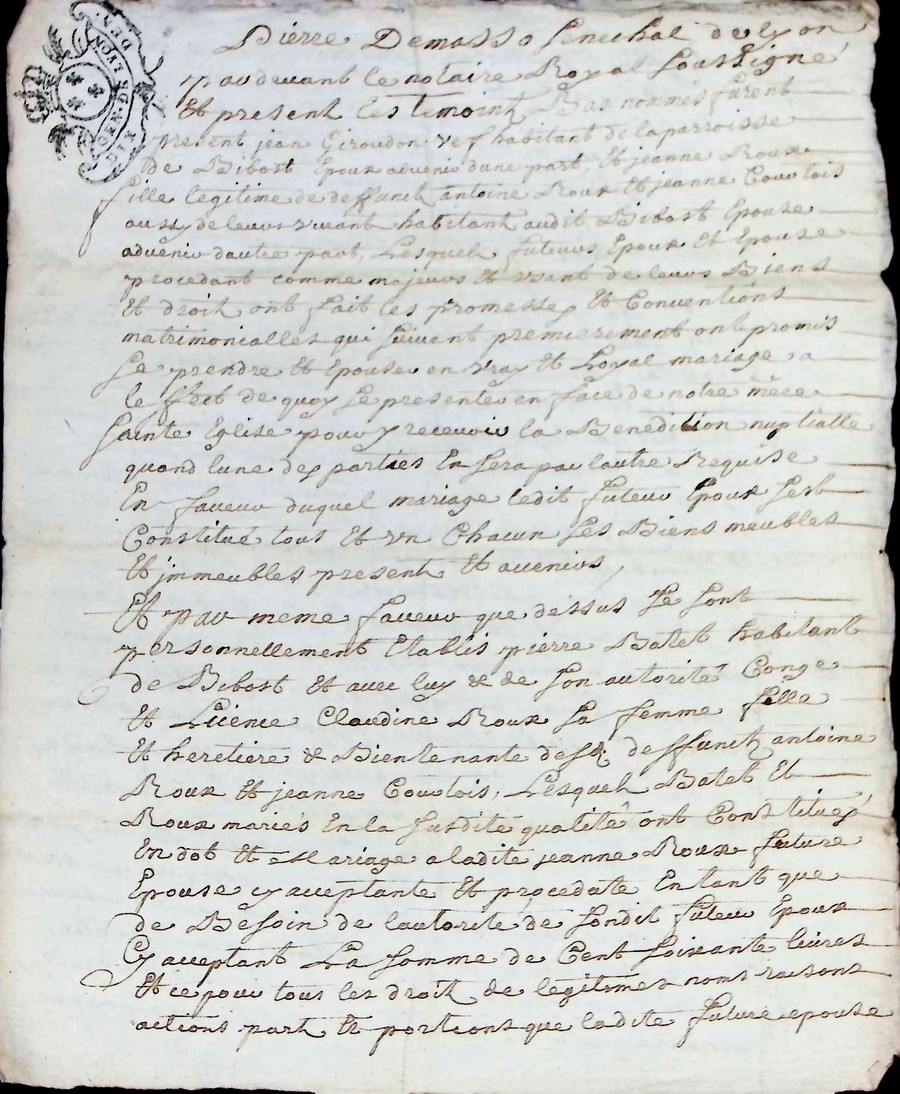 GNRO DE LYON
Pierre Demasso Senechal de lyon
pardevant le notaire Royal Soussigné
Et present les temoint Bas nommés furent
present jean Giroudon vef habitant de la parroisse
de Bibost Epoux advenir dune part, Et jeanne Roux
fille legitime de deffunck antoine Roux Et jeanne Courtois
aussy de leurs vivant habitant audit Bibost Epouse
advenir dautre part, Lesquel futeurs Epoux Et Epouse
procedant comme majeurs Et usant de leurs Biens
Et droit ont fait les promesse Et Conventions
matrimonialles qui suivent premierement ont promis
se prendre Et Epouser en vray Et Loyal mariage a
le fect de quoy se presenter en face de notre mere
Sainte Eglise pour y recevoir la Benediction nuptialle
quand lune des parties En sera par lautre Requise
En faveur duquel mariage ledit futeur Epoux sest
Constitué tous Et un Chacun ses Biens meubles
Et jmmeubles present Et avenirs,
Et par meme faveur que dessus se sont
personnellement Etablis pierre Batet habitant
de Bibost Et avec luy & de son autorité Congé
Et Licence Claudine Roux sa femme fille
Et heretiere & Bientenante desd. deffunck antoine
Roux Et jeanne Courtois, Lesquel Batet Et
Roux mariés En la susdite qualité ont Constitués
En dot Et Mariage a ladite jeanne Roux future
Epouse cy acceptante Et procedate En tant que
de Besoin de lautorité de sondit futeur Epoux
Cy acceptant La somme de Cent soixante livres
Et ce pour tous les droit de legitimes noms raisons
actions part Et portions que ladite future epouse